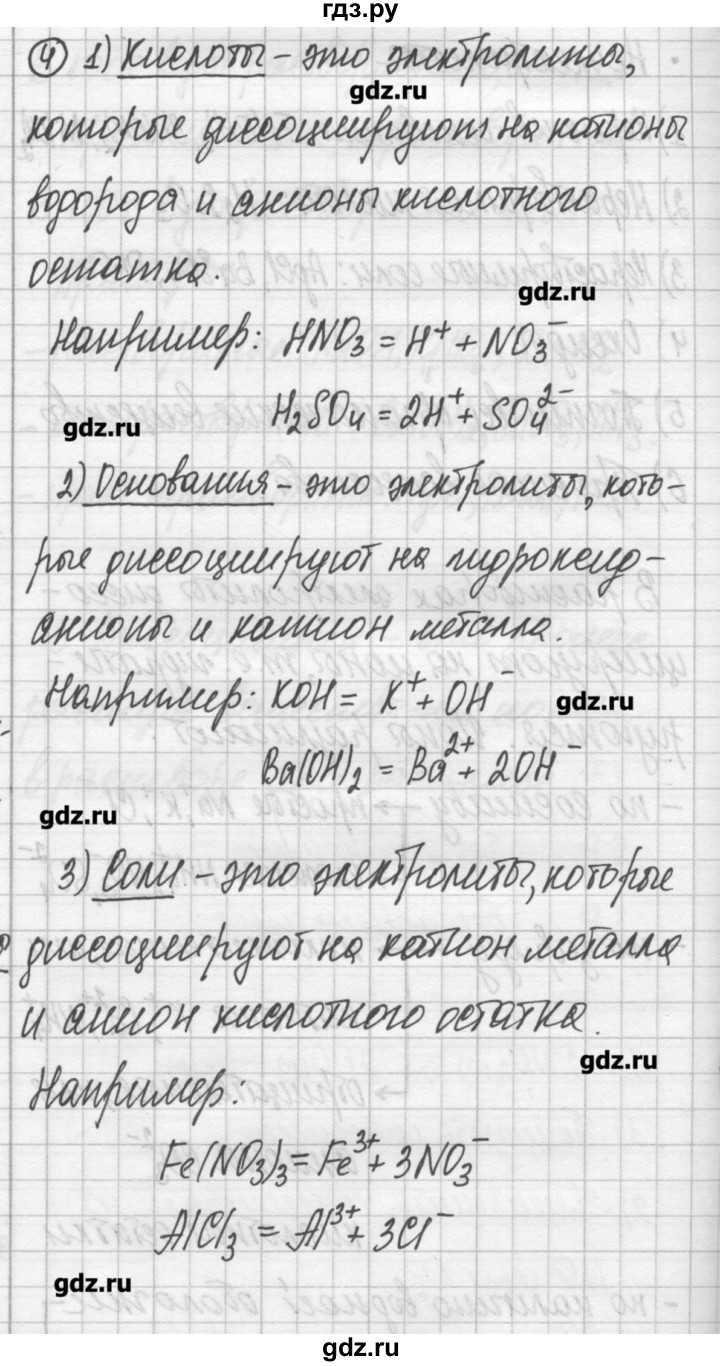 гдз.ру
④ 1) Кислоты – это электролиты,
gdz.ru
которые диссоциируют на катионы
водорода и анионы кислотного
остатка.
gdz.ru
Например: HNO₃ = H⁺ + NO₃⁻
H₂SO₄ = 2H⁺ + SO₄²⁻
gdz.ru
2) Основания – это электролиты, кото-
рые диссоциируют на гидроксид-
анионы и катион металла.
Например: KOH = K⁺ + OH⁻
gdz.ru
Ba(OH)₂ = Ba²⁺ + 2OH⁻
gdz.ru
3) Соли – это электролиты, которые
диссоциируют на катион металла
и анион кислотного остатка.
gdz.ru
Например:
Fe(NO₃)₃ = Fe³⁺ + 3NO₃⁻
AlCl₃ = Al³⁺ + 3Cl⁻
gdz.ru
gdz.ru